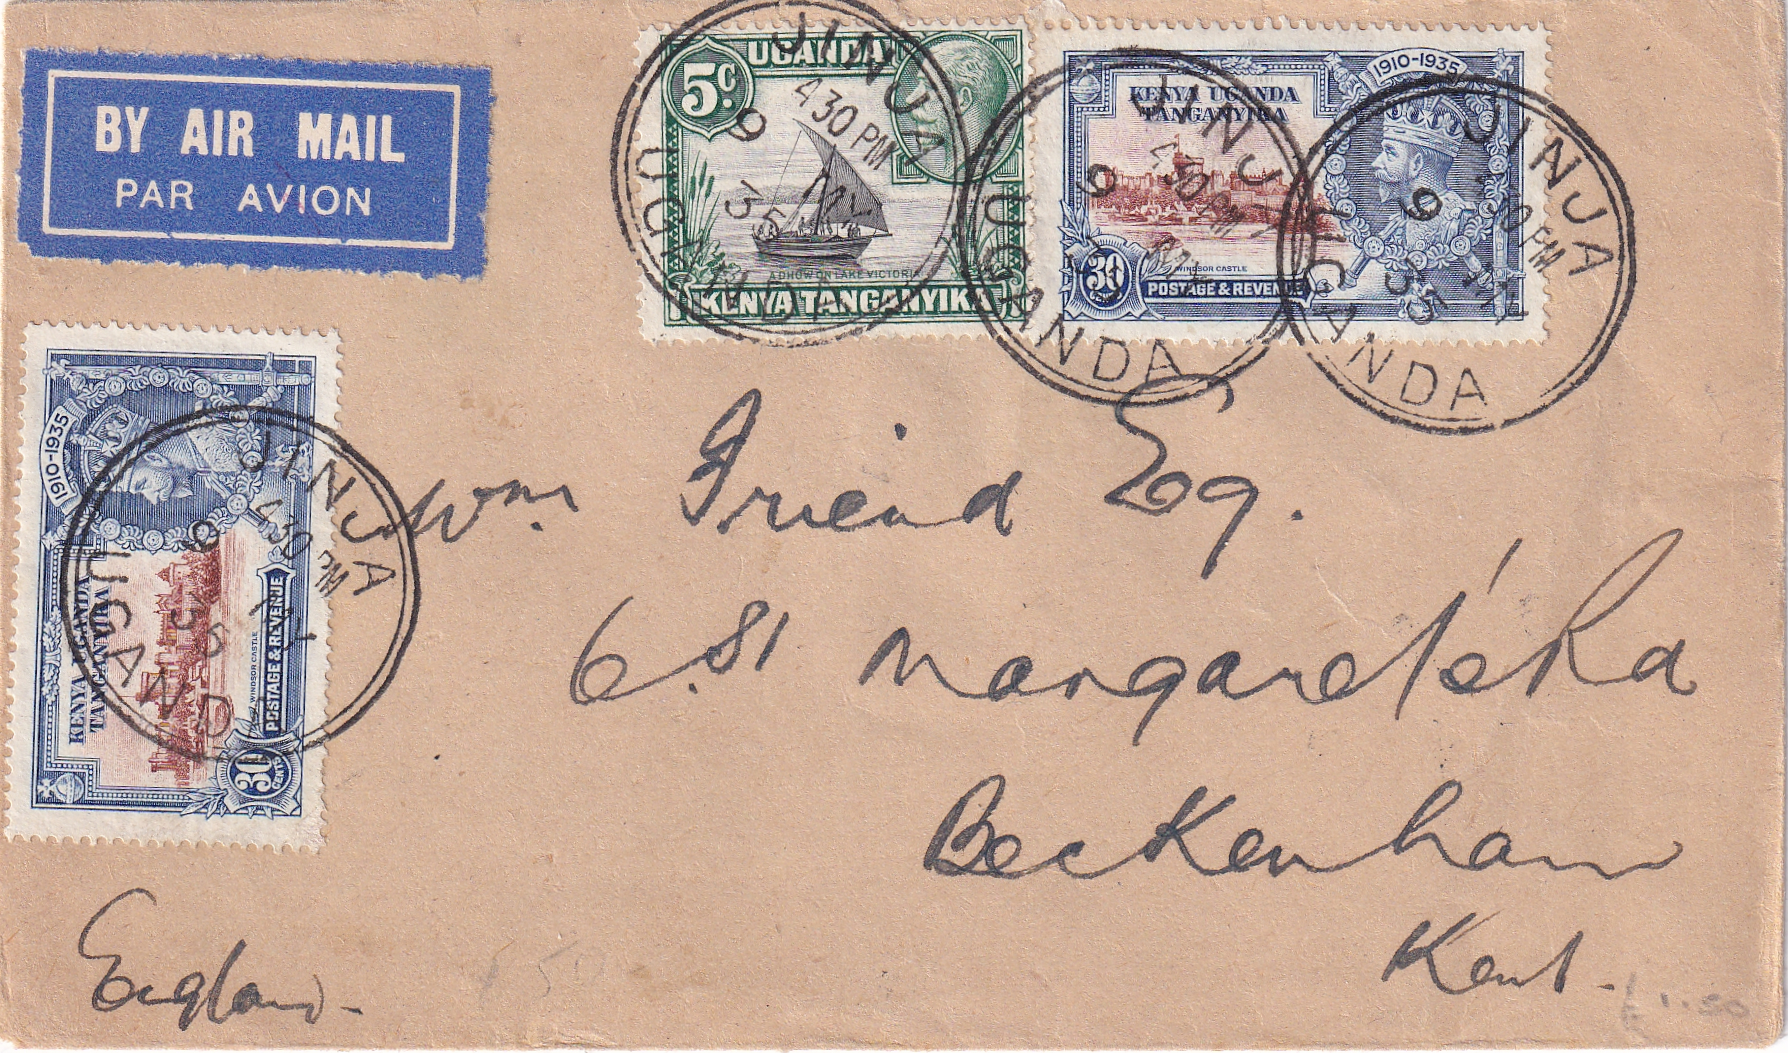 BY AIR MAIL
PAR AVION
UGANDA
5c.
A DHOW ON LAKE VICTORIA
KENYA TANGANYIKA
JINJA
430 PM
9 MY
35
UGANDA
1910-1935
KENYA UGANDA
TANGANYIKA
30
WINDSOR CASTLE
POSTAGE & REVENUE
JINJA
430 PM
9 MY
UGANDA
JINJA
430 PM
9 MY
35
UGANDA
1910-1935
KENYA UGANDA
TANGANYIKA
WINDSOR CASTLE
POSTAGE & REVENUE
30
CENTS
JINJA
430 PM
9 MY
35
UGANDA
Wm. Friend Esq.
6 St Margaret's Rd
Beckenham
Kent.
England.
£1.50